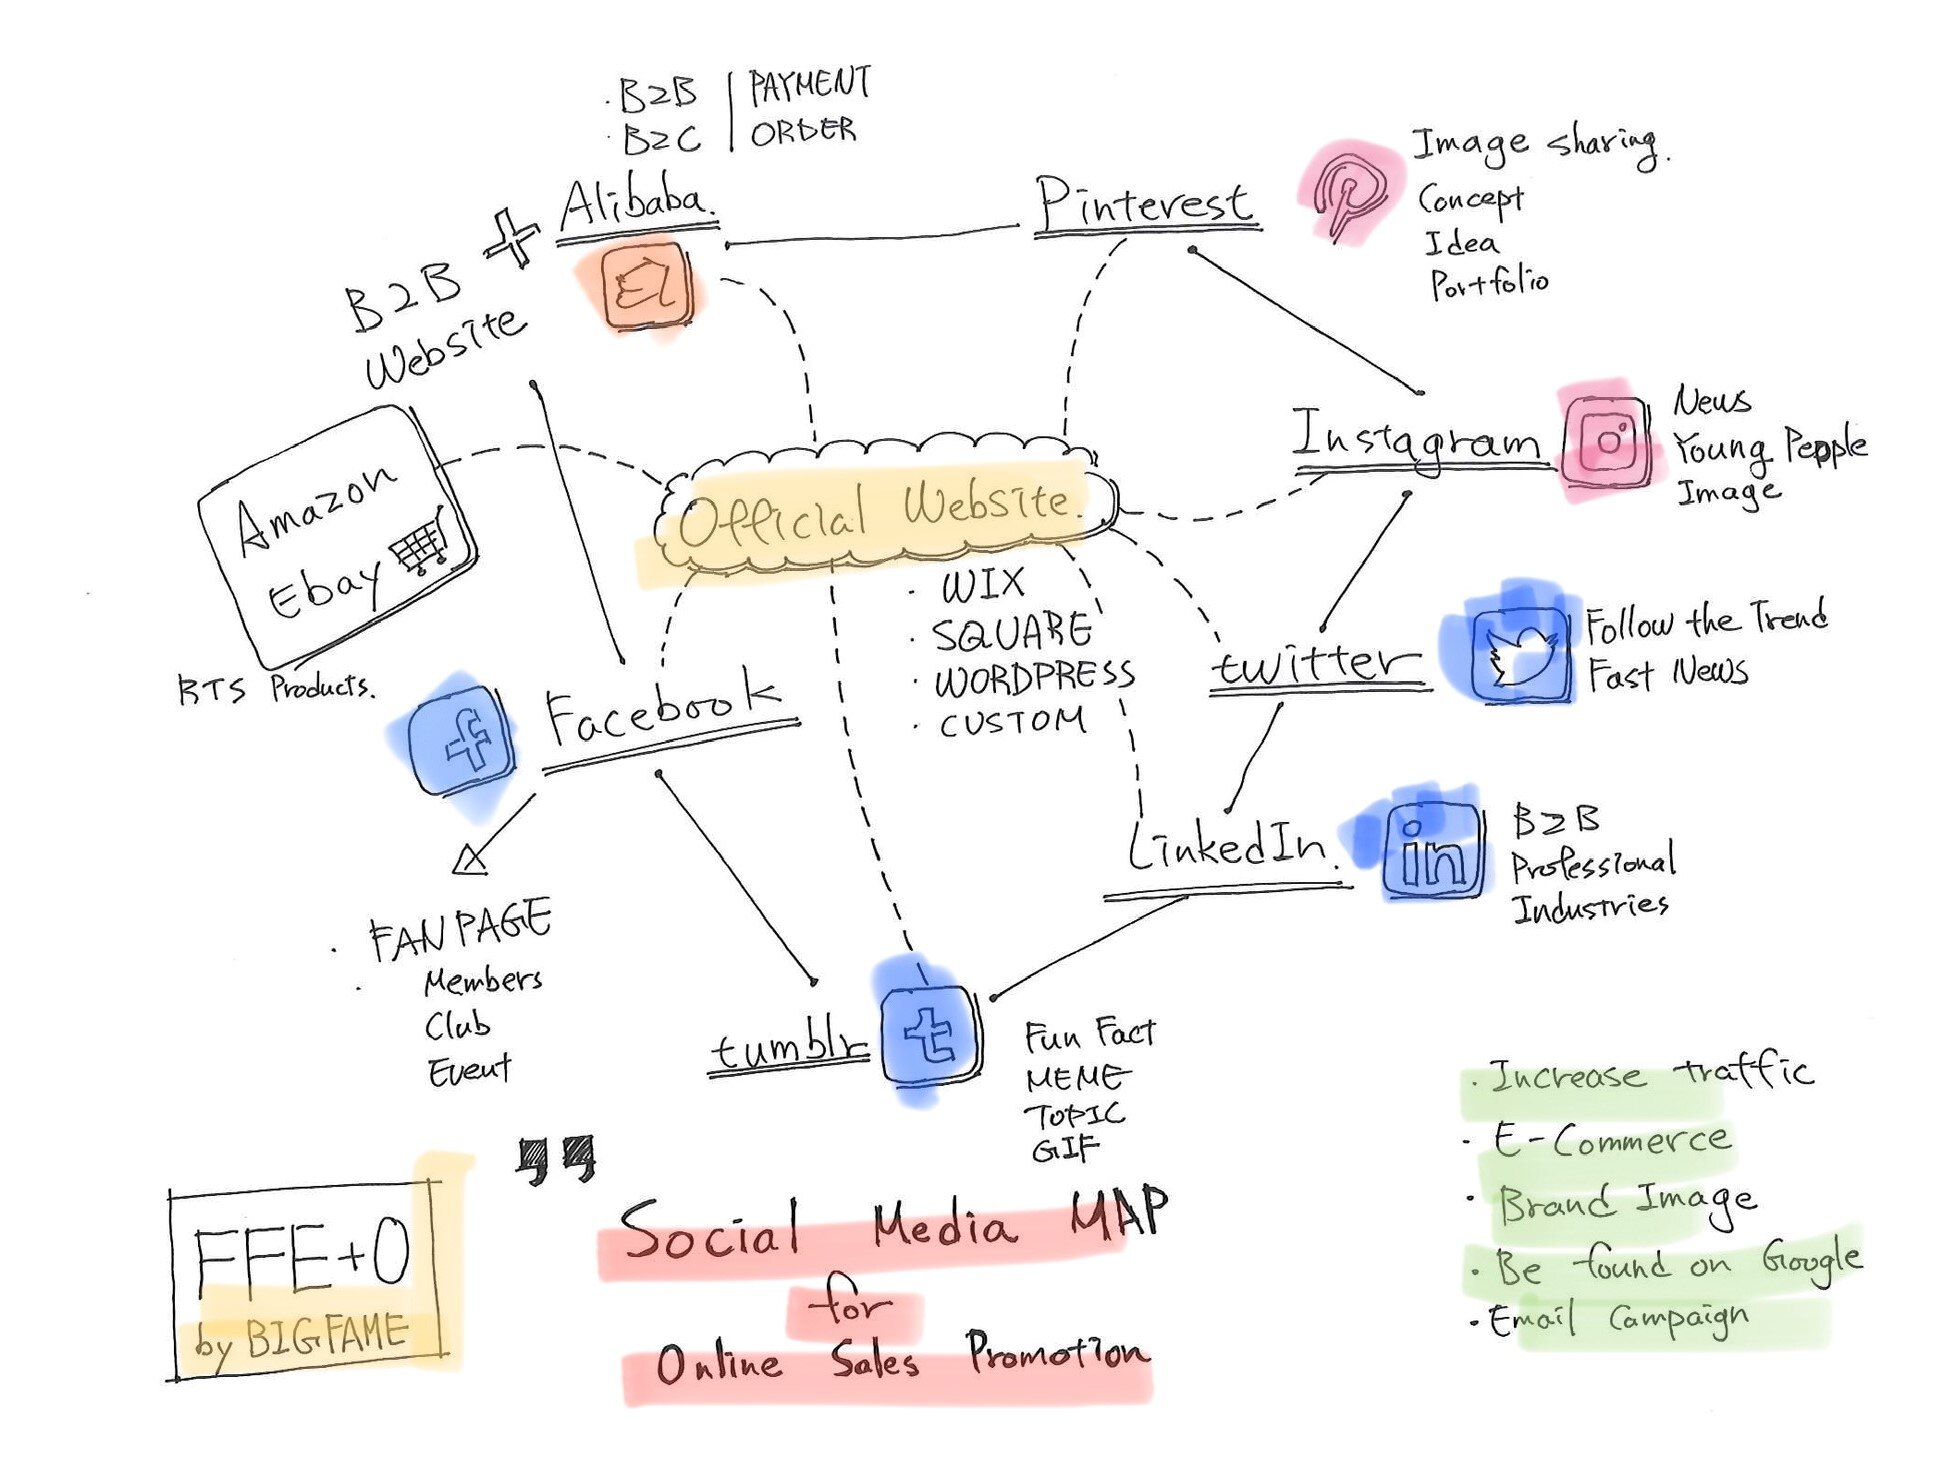 · B2B | PAYMENT
· B2C | ORDER
Alibaba.
B2B +
Website
Pinterest
Image sharing.
Concept
Idea
Portfolio
Instagram
News
Young Pepple
Image
Amazon
Ebay
RTS Products.
Official Website.
· WIX
· SQUARE
· WORDPRESS
· CUSTOM
twitter
Follow the Trend
Fast News
f
Facebook
LinkedIn.
in
B2B
Professional
Industries
· FAN PAGE
· Members
Club
Event
tumblr
t
Fun Fact
MEME
TOPIC
GIF
· Increase traffic
· E-Commerce
· Brand Image
· Be found on Google
· Email Campaign
FFE+O
by BIGFAME
"
Social Media MAP
for
Online Sales Promotion